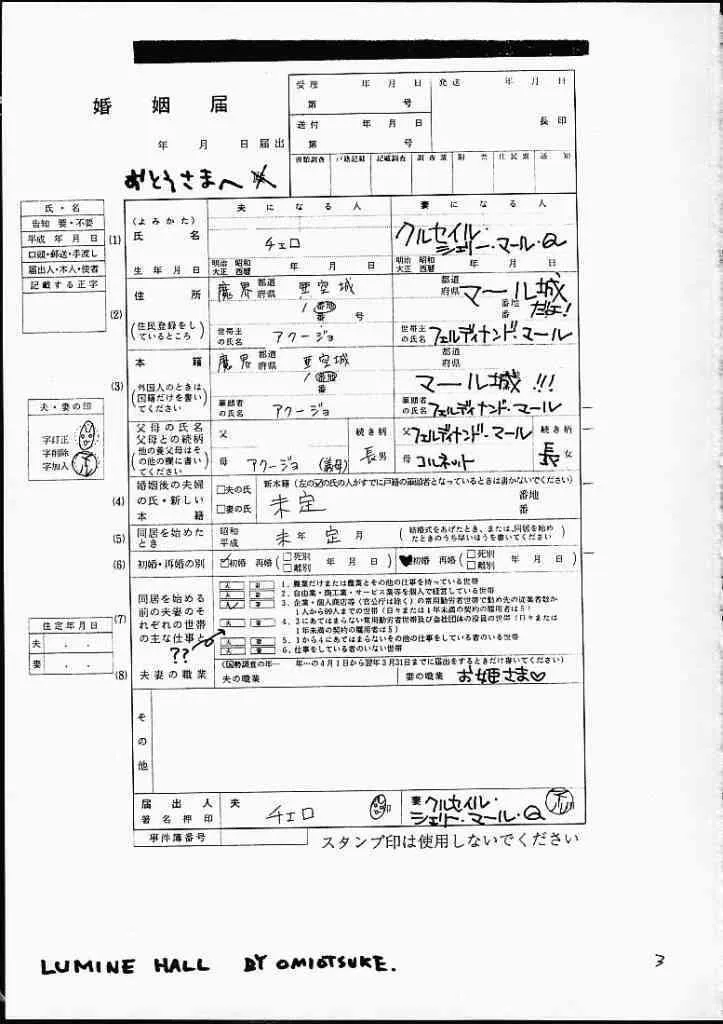 婚姻届
年 月 日 届出
おとうさまへ
受理 年 月 日
第 号
発送 年 月 日
送付 年 月 日
第 号
長印
書類調査 戸籍記載 記載調査 調査票 附票 住民票 通知
氏・名
告知 要・不要
平成 年 月 日
口頭・郵送・手渡し
届出人・本人・使者
記載する正字
夫になる人 妻になる人
(1)
(よみかた)
氏名
チェロ
クルセイル・
シェリー・マール・Q
生年月日
明治 昭和
大正 西暦
年 月 日
明治 昭和
大正 西暦
年 月 日
(2)
住所
(住民登録をし
ているところ)
魔界 都道府県 亜空城
1 番地
番 号
都道
府県
マール城
番地
番
だよ!
世帯主
の氏名
アクージョ
世帯主
の氏名
フェルディナンド・マール
(3)
本籍
(外国人のときは
国籍だけを書い
てください)
魔界 都道府県 亜空城
1 番地
番
都道
府県
マール城!!!
筆頭者
の氏名
アクージョ
筆頭者
の氏名
フェルディナンド・マール
夫・妻の印
字訂正
字削除
字加入
父母の氏名
父母との続柄
(他の養父母はそ
の他の欄に書い
てください)
父
母 アクージョ (義母)
続き柄
長男
父 フェルディナンド・マール
母 コルネット
続き柄
長女
(4)
婚姻後の夫婦
の氏・新しい
本籍
□夫の氏
□妻の氏
新本籍(左の☑の氏の人がすでに戸籍の筆頭者となっているときは書かないでください)
未定
番地
番
(5)
同居を始めた
とき
昭和
平成
未年 定月
(結婚式をあげたとき、または、同居を始め
たときのうち早いほうを書いてください)
(6)
初婚・再婚の別
☑初婚 再婚(□死別 □離別 年 月 日)
♥初婚 再婚(□死別 □離別 年 月 日)
(7)
同居を始める
前の夫妻のそ
れぞれの世帯
の主な仕事と
??
夫 妻 1. 農業だけまたは農業とその他の仕事を持っている世帯
夫 妻 2. 自由業・商工業・サービス業等を個人で経営している世帯
夫 妻 3. 企業・個人商店等(官公庁は除く)の常用勤労者世帯で勤め先の従業者数が
1人から99人までの世帯(日々または1年未満の契約の雇用者は5)
夫 妻 4. 3にあてはまらない常用勤労者世帯及び会社団体の役員の世帯(日々または
1年未満の契約の雇用者は5)
夫 妻 5. 1から4にあてはまらないその他の仕事をしている者のいる世帯
夫 妻 6. 仕事をしている者のいない世帯
住定年月日
夫 . .
妻 . .
(8)
夫妻の職業
(国勢調査の年… 年…の4月1日から翌年3月31日までに届出をするときだけ書いてください)
夫の職業
妻の職業 お姫さま♡
その他
届出人
署名押印
夫 チェロ 印
妻 クルセイル・
シェリー・マール・Q 印
事件簿番号
スタンプ印は使用しないでください
LUMINE HALL BY OMIOTSUKE.
3